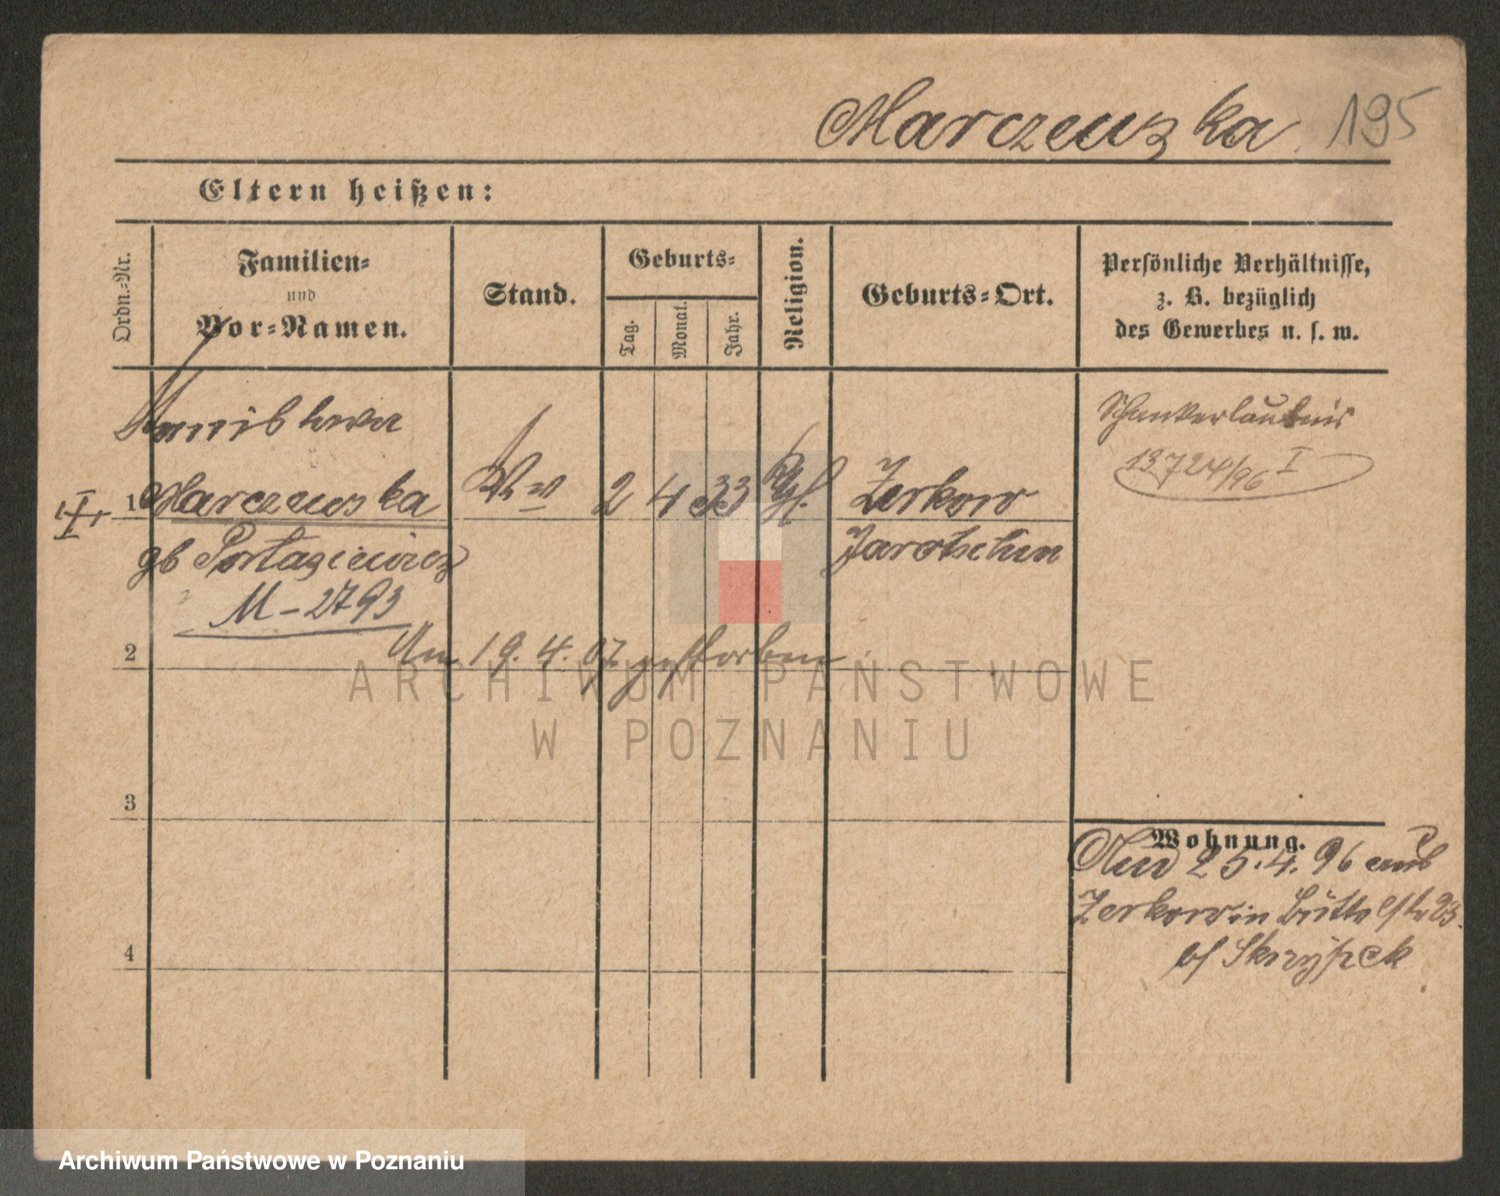 Marczewska 195
Eltern heißen:
Ordn.-Nr.
Familien-
und
Vor-Namen.
Stand.
Geburts-
Tag.
Monat.
Jahr.
Religion.
Geburts-Ort.
Persönliche Verhältnisse,
z. B. bezüglich
des Gewerbes u. s. w.
Stanislawa
1 Marczewska Ww 2 4 33 Zerkow
gb Jarotschin
M-2793
Schankerlaubnis
13724/96 I
2
Am 19. 4. 07 gestorben.
3
Wohnung.
25.4.96 aus
Zerkow in Büttelstr 23.
b/ Skrzypek
4
ARCHIWUM PAŃSTWOWE
W POZNANIU
Archiwum Państwowe w Poznaniu